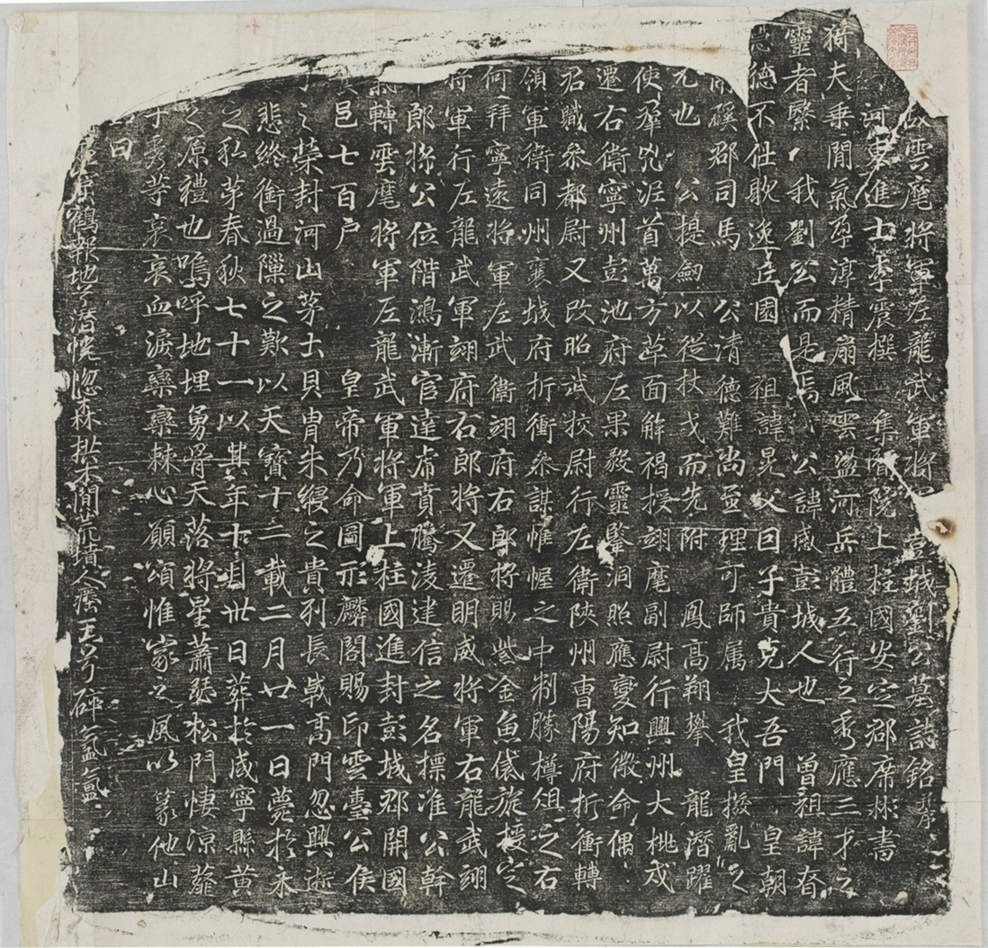 故雲麾將軍左龍武軍將彭城劉公墓誌銘并序
河東進士李震撰 集賢院上柱國安定郡席彬書
夫乘閒氣孕淳精扇風雲盪河岳體五行之秀應三才之
靈者繄我劉公而是焉 公諱感彭城人也 曾祖諱春
德不仕耿逸丘園 祖諱晃父曰子貴克大吾門 皇朝
磎郡司馬 公清德難尚至理可師属 我皇撥亂之
元也 公提劒以從杖戈而先附 鳳髙翔攀 龍潛躍
使羣兇泥首萬方草面解褐授翊麾副尉行興州大桃戍
遷右衛寧州彭池府左果毅靈鑒洞照應變知微命偶
召職叅都尉又改昭武挍尉行左衛陝州曹陽府折衝轉
領軍衛同州襄城府折衝叅謀惟幄之中制勝樽俎之右
何拜寧遠將軍左武衛翊府右郎將賜紫金魚袋旋授定
將軍行左龍武軍翊府右郎將又遷明威將軍右龍武翊
郎將公位階鴻漸官達虎賁騰淩建信之名標准公幹
氣轉雲麾將軍左龍武軍將軍上柱國進封彭城郡開國
邑七百户 皇帝乃命圖形麟閣賜印雲臺公侯
之榮封河山茅土貝胄朱綬之貴列長戟髙門忽興逝
悲終銜過隟之歎以天寶十二載二月廿一日薨於永
之私苐春秋七十一以其年十月卅日葬於咸寧縣黄
之原禮也嗚呼地埋勇骨天落將星蕭瑟松門悽涼薤
子秀等哀哀血淚欒欒棘心願頌惟家之風以篆他山
曰
原鶴報地子潛悅惚森拱木閒荒墳人瘞玉兮碎氳氳